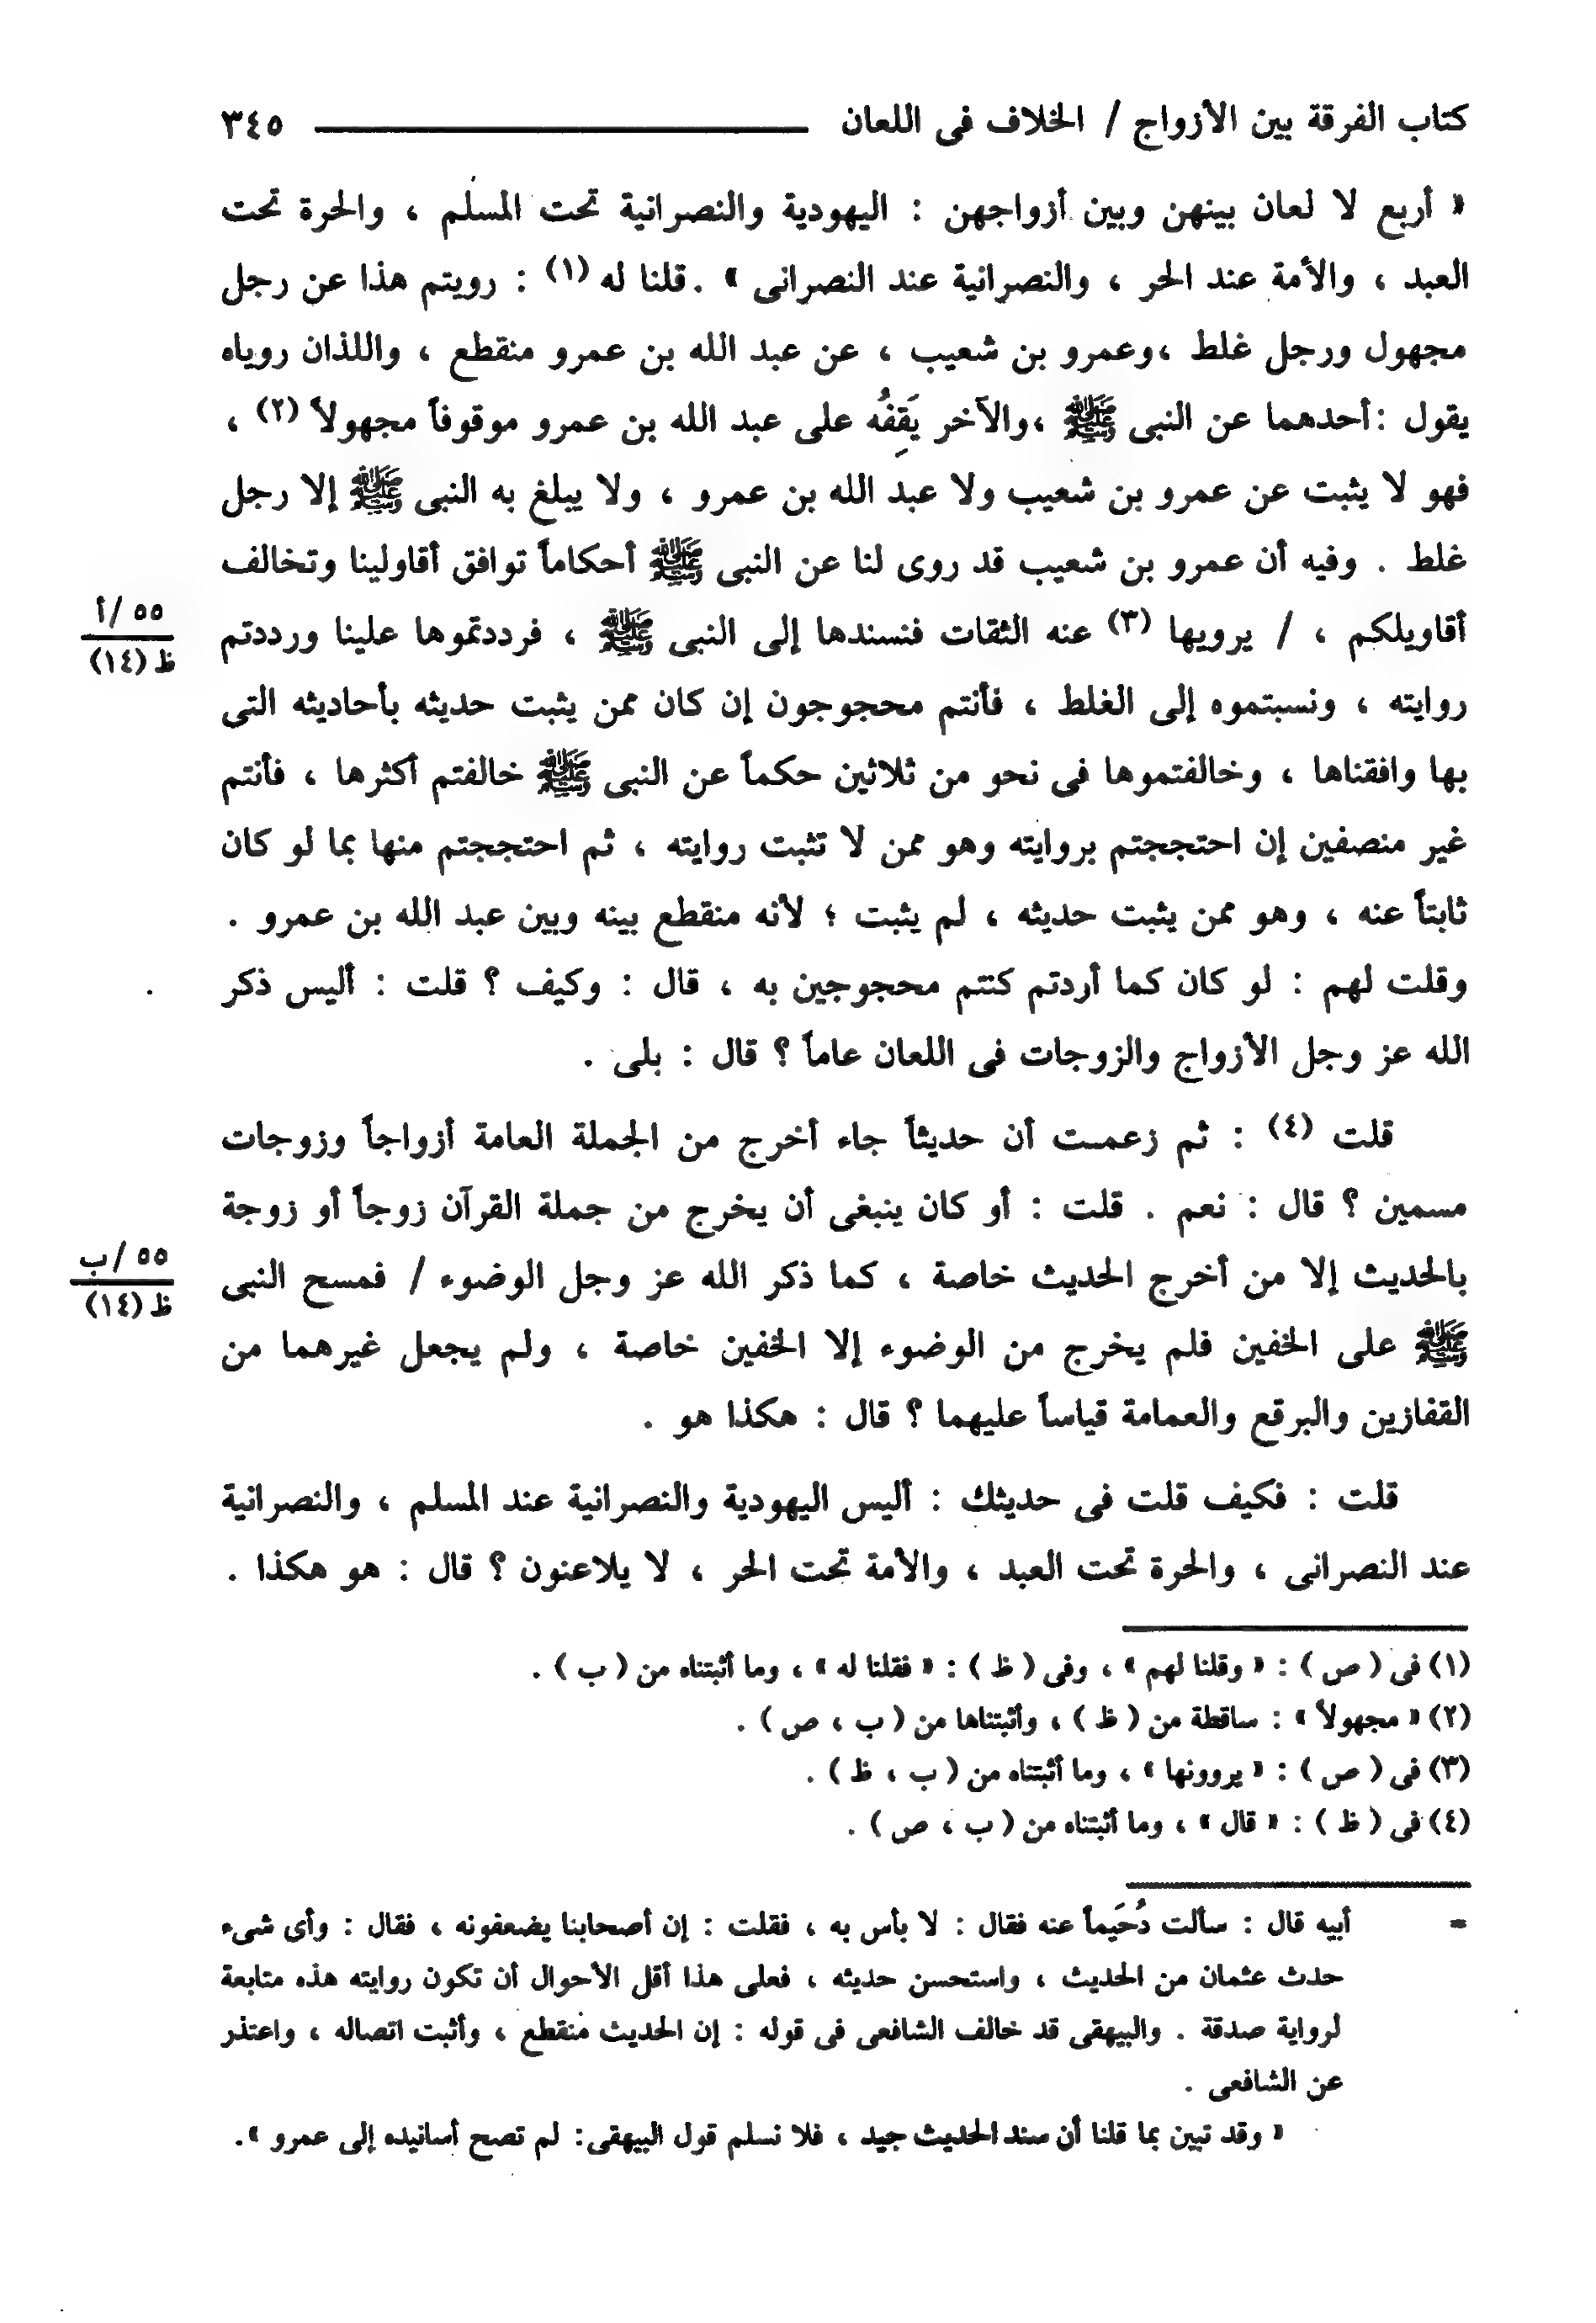 كتاب الفرقة بين الأزواج / الخلاف فى اللعان ٣٤٥
« أربع لا لعان بينهن وبين أزواجهن : اليهودية والنصرانية تحت المسلم ، والحرة تحت
العبد ، والأمة عند الحر ، والنصرانية عند النصرانى » . قلنا له (١) : رويتم هذا عن رجل
مجهول ورجل غلط ، وعمرو بن شعيب ، عن عبد الله بن عمرو منقطع ، واللذان روياه
يقول : أحدهما عن النبى ﷺ ، والآخر يَقِفُه على عبد الله بن عمرو موقوفاً مجهولاً (٢) ،
فهو لا يثبت عن عمرو بن شعيب ولا عبد الله بن عمرو ، ولا يبلغ به النبى ﷺ إلا رجل
غلط . وفيه أن عمرو بن شعيب قد روى لنا عن النبى ﷺ أحكاماً توافق أقاولينا وتخالف
أقاويلكم ، / يرويها (٣) عنه الثقات فنسندها إلى النبى ﷺ ، فرددتموها علينا ورددتم
٥٥ /أ
ظ (١٤)
روايته ، ونسبتموه إلى الغلط ، فأنتم محجوجون إن كان ممن يثبت حديثه بأحاديثه التى
بها وافقناها ، وخالفتموها فى نحو من ثلاثين حكماً عن النبى ﷺ خالفتم أكثرها ، فأنتم
غير منصفين إن احتججتم بروايته وهو ممن لا تثبت روايته ، ثم احتججتم منها بما لو كان
ثابتاً عنه ، وهو ممن يثبت حديثه ، لم يثبت ؛ لأنه منقطع بينه وبين عبد الله بن عمرو .
وقلت لهم : لو كان كما أردتم كنتم محجوجين به ، قال : وكيف ؟ قلت : أليس ذكر
الله عز وجل الأزواج والزوجات فى اللعان عاماً ؟ قال : بلى .
قلت (٤) : ثم زعمت أن حديثاً جاء أخرج من الجملة العامة أزواجاً وزوجات
مسمين ؟ قال : نعم . قلت : أو كان ينبغى أن يخرج من جملة القرآن زوجاً أو زوجة
بالحديث إلا من أخرج الحديث خاصة ، كما ذكر الله عز وجل الوضوء / فمسح النبى
٥٥ /ب
ظ (١٤)
ﷺ على الخفين فلم يخرج من الوضوء إلا الخفين خاصة ، ولم يجعل غيرهما من
القفازين والبرقع والعمامة قياساً عليهما ؟ قال : هكذا هو .
قلت : فكيف قلت فى حديثك : أليس اليهودية والنصرانية عند المسلم ، والنصرانية
عند النصرانى ، والحرة تحت العبد ، والأمة تحت الحر ، لا يلاعنون ؟ قال : هو هكذا .
(١) فى ( ص ) : « وقلنا لهم » ، وفى ( ظ ) : « فقلنا له » ، وما أثبتناه من ( ب ) .
(٢) « مجهولاً » : ساقطة من ( ظ ) ، وأثبتناها من ( ب ، ص ) .
(٣) فى ( ص ) : « يروونها » ، وما أثبتناه من ( ب ، ظ ) .
(٤) فى ( ظ ) : « قال » ، وما أثبتناه من ( ب ، ص ) .
= أبيه قال : سألت دُحَيماً عنه فقال : لا بأس به ، فقلت : إن أصحابنا يضعفونه ، فقال : وأى شىء
حدث عثمان من الحديث ، واستحسن حديثه ، فعلى هذا أقل الأحوال أن تكون روايته هذه متابعة
لرواية صدقة . والبيهقى قد خالف الشافعى فى قوله : إن الحديث منقطع ، وأثبت اتصاله ، واعتذر
عن الشافعى .
« وقد تبين بما قلنا أن سند الحديث جيد ، فلا نسلم قول البيهقى: لم تصح أسانيده إلى عمرو ».